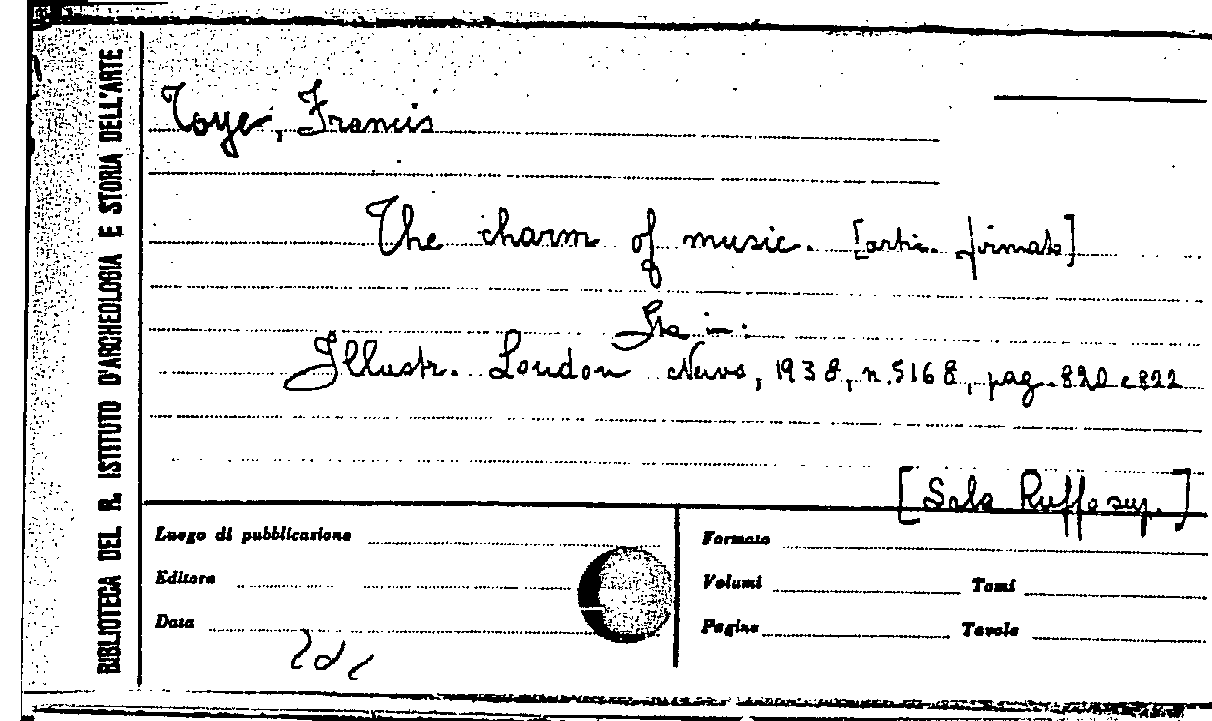 BIBLIOTECA DEL R. ISTITUTO D'ARCHEOLOGIA E STORIA DELL'ARTE
Toye, Francis
The charm of music. [artic. firmato]
Sta in:
Illustr. London News, 1938, n. 5168, pag. 820 e 822
[Sala Ruffo sup.]
Luogo di pubblicazione
Editore
Data
Formato
Volumi Tomi
Pagine Tavole